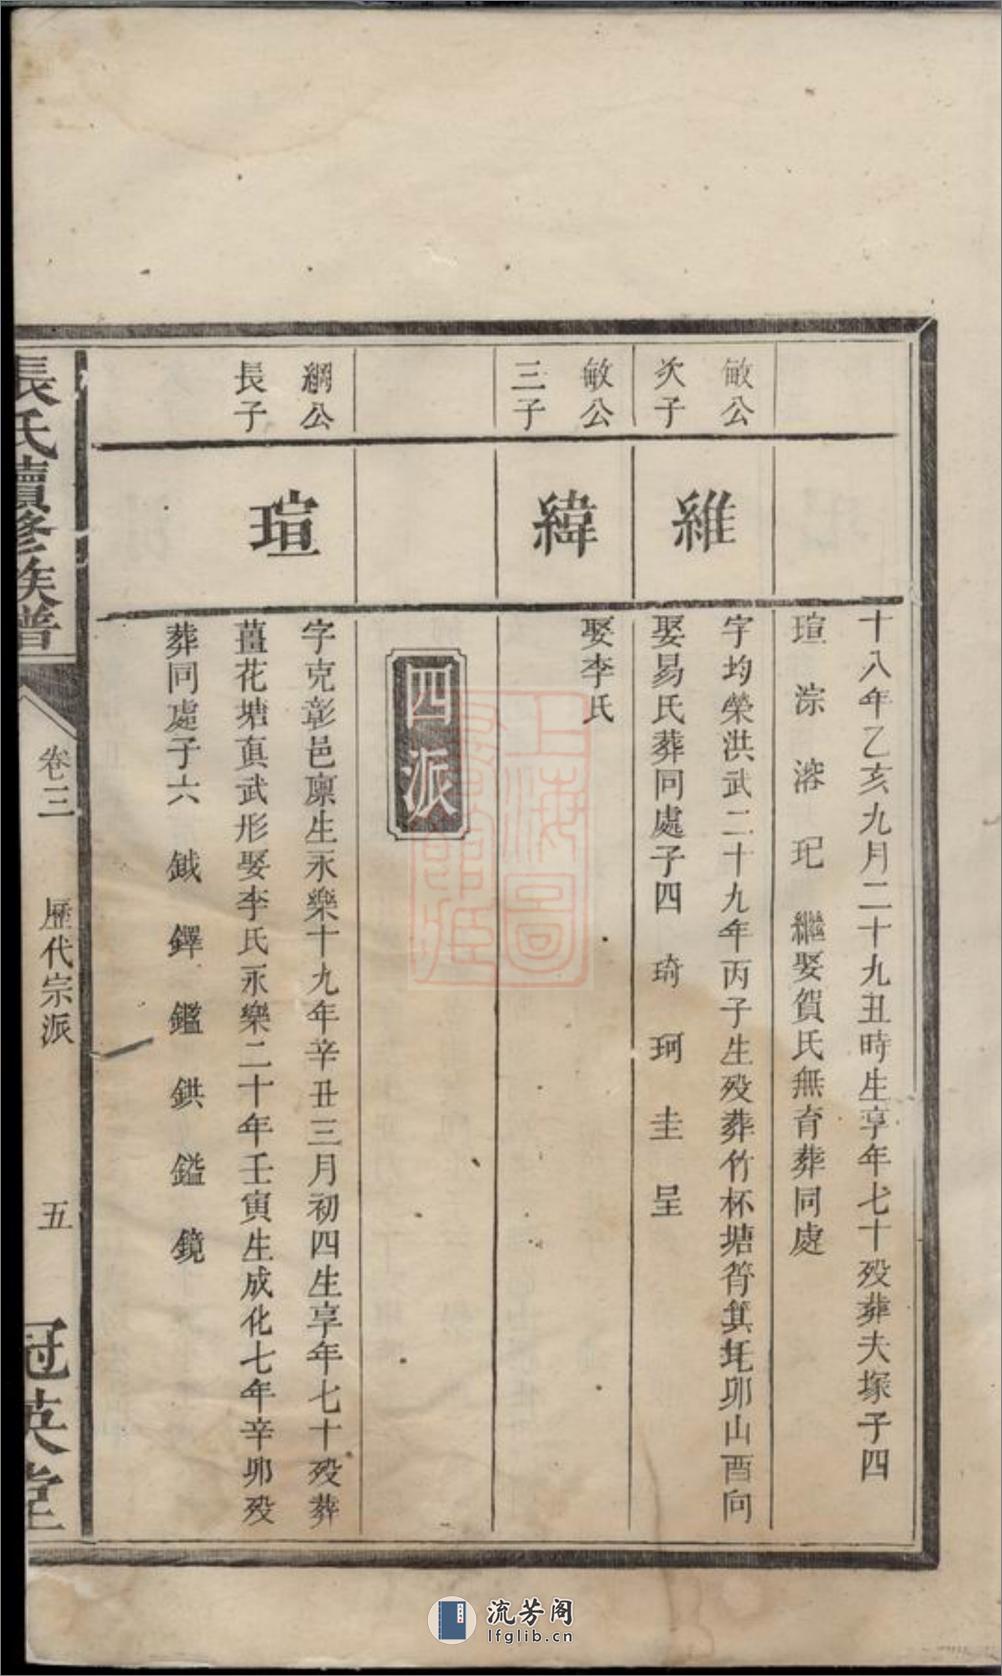 十八年乙亥九月二十九丑時生享年七十殁葬夫塚子四
瑄 淙 溶 玘 繼娶賀氏無育葬同處
敏公
次子
維
字均榮洪武二十九年丙子生殁葬竹杯塘筲箕坉卯山酉向
娶易氏葬同處子四 琦 珂 圭 呈
敏公
三子
緯
娶李氏
四派
綱公
長子
瑄
字克彰邑廪生永樂十九年辛丑三月初四生享年七十殁葬
薑花塘眞武形娶李氏永樂二十年壬寅生成化七年辛卯殁
葬同處子六 鉞 鐸 鑑 鉷 鎰 鏡
張氏續修族譜
卷三
歷代宗派
五
冠英堂
上海圖
書館藏
流芳阁
lfglib.cn